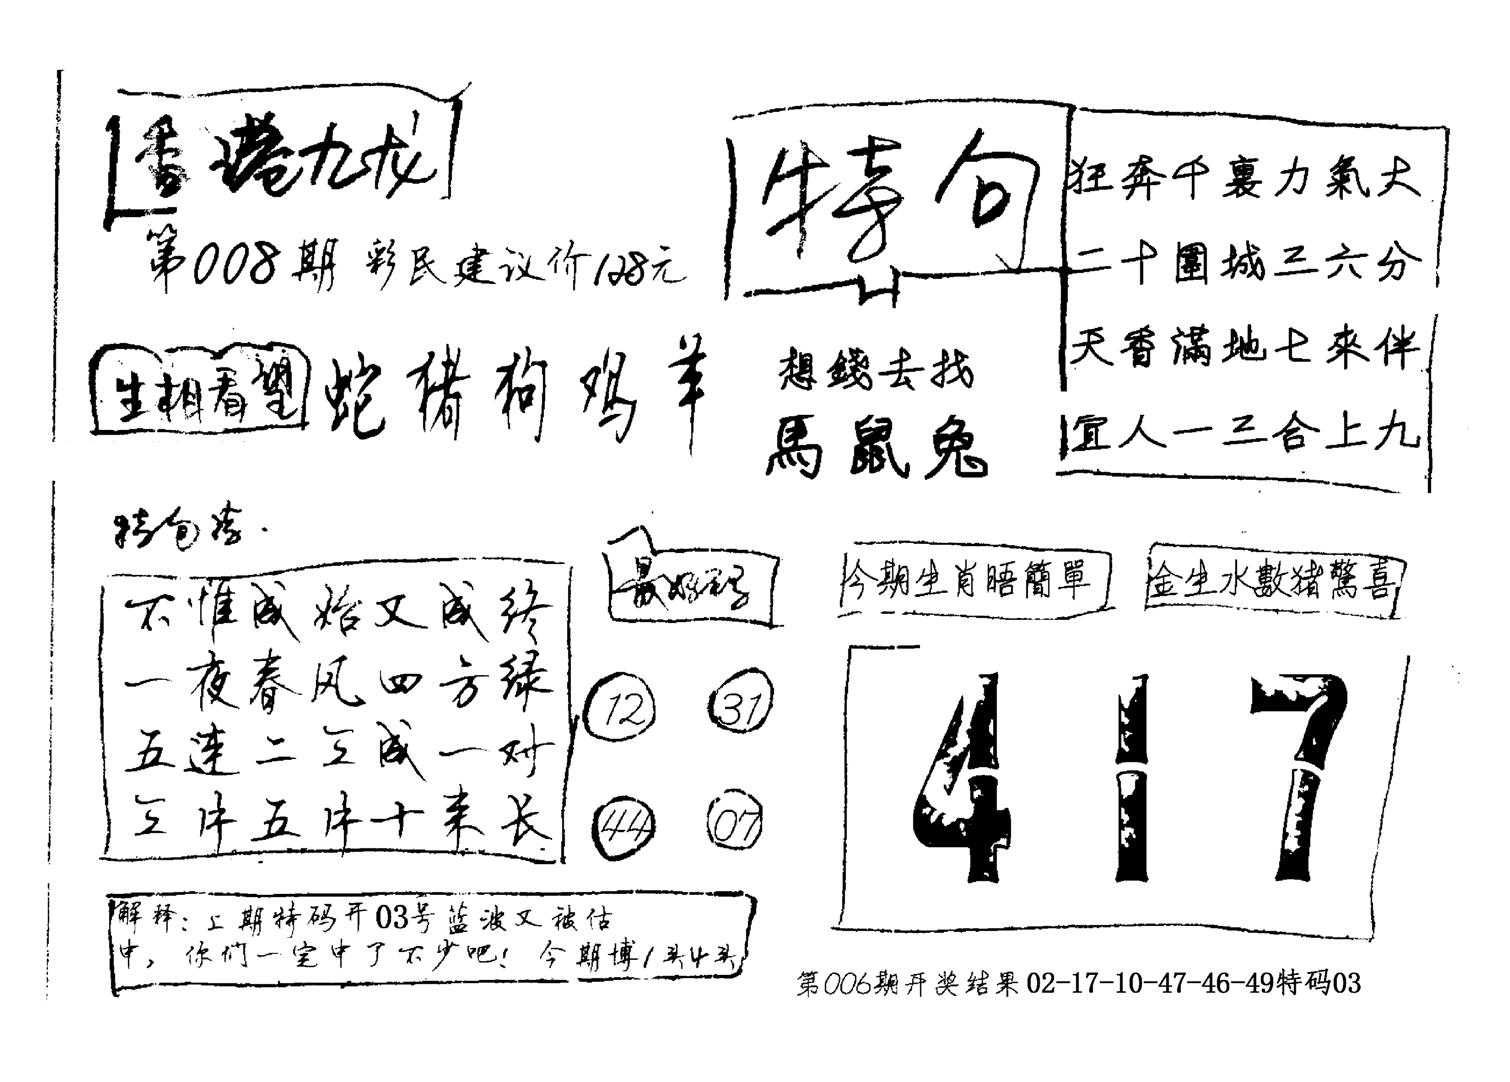 香港九龙
第008期 彩民建议价128元
特句
狂奔千裏力氣大
二十圍城三六分
天香滿地七來伴
宜人一三合上九
生相看望 蛇猪狗鸡羊
想錢去找
馬鼠兔
特句诗
不惟成始又成终
一夜春风四方绿
五连二三成一对
三中五中十来长
最好码
12 31
44 07
今期生肖晤簡單
金生水數猪驚喜
417
解释：上期特码开03号蓝波又被估
中，你们一定中了不少吧！今期博1头4头
第006期开奖结果02-17-10-47-46-49特码03